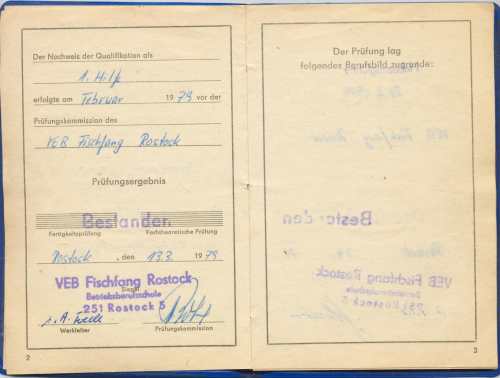 Der Nachweis der Qualifikation als
1. Hilf
erfolgte am Februar 1979 vor der
Prüfungskommission des
VEB Fischfang Rostock
Prüfungsergebnis
Bestanden
Fertigkeitsprüfung Fachtheoretische Prüfung
Rostock, den 13.3. 1979
VEB Fischfang Rostock
Siegel
Betriebsberufsschule
251 Rostock 5
Werkleiter Prüfungskommission
2
Der Prüfung lag
folgendes Berufsbild zugrunde:
Bestanden
VEB Fischfang Rostock
251 Rostock 5
3